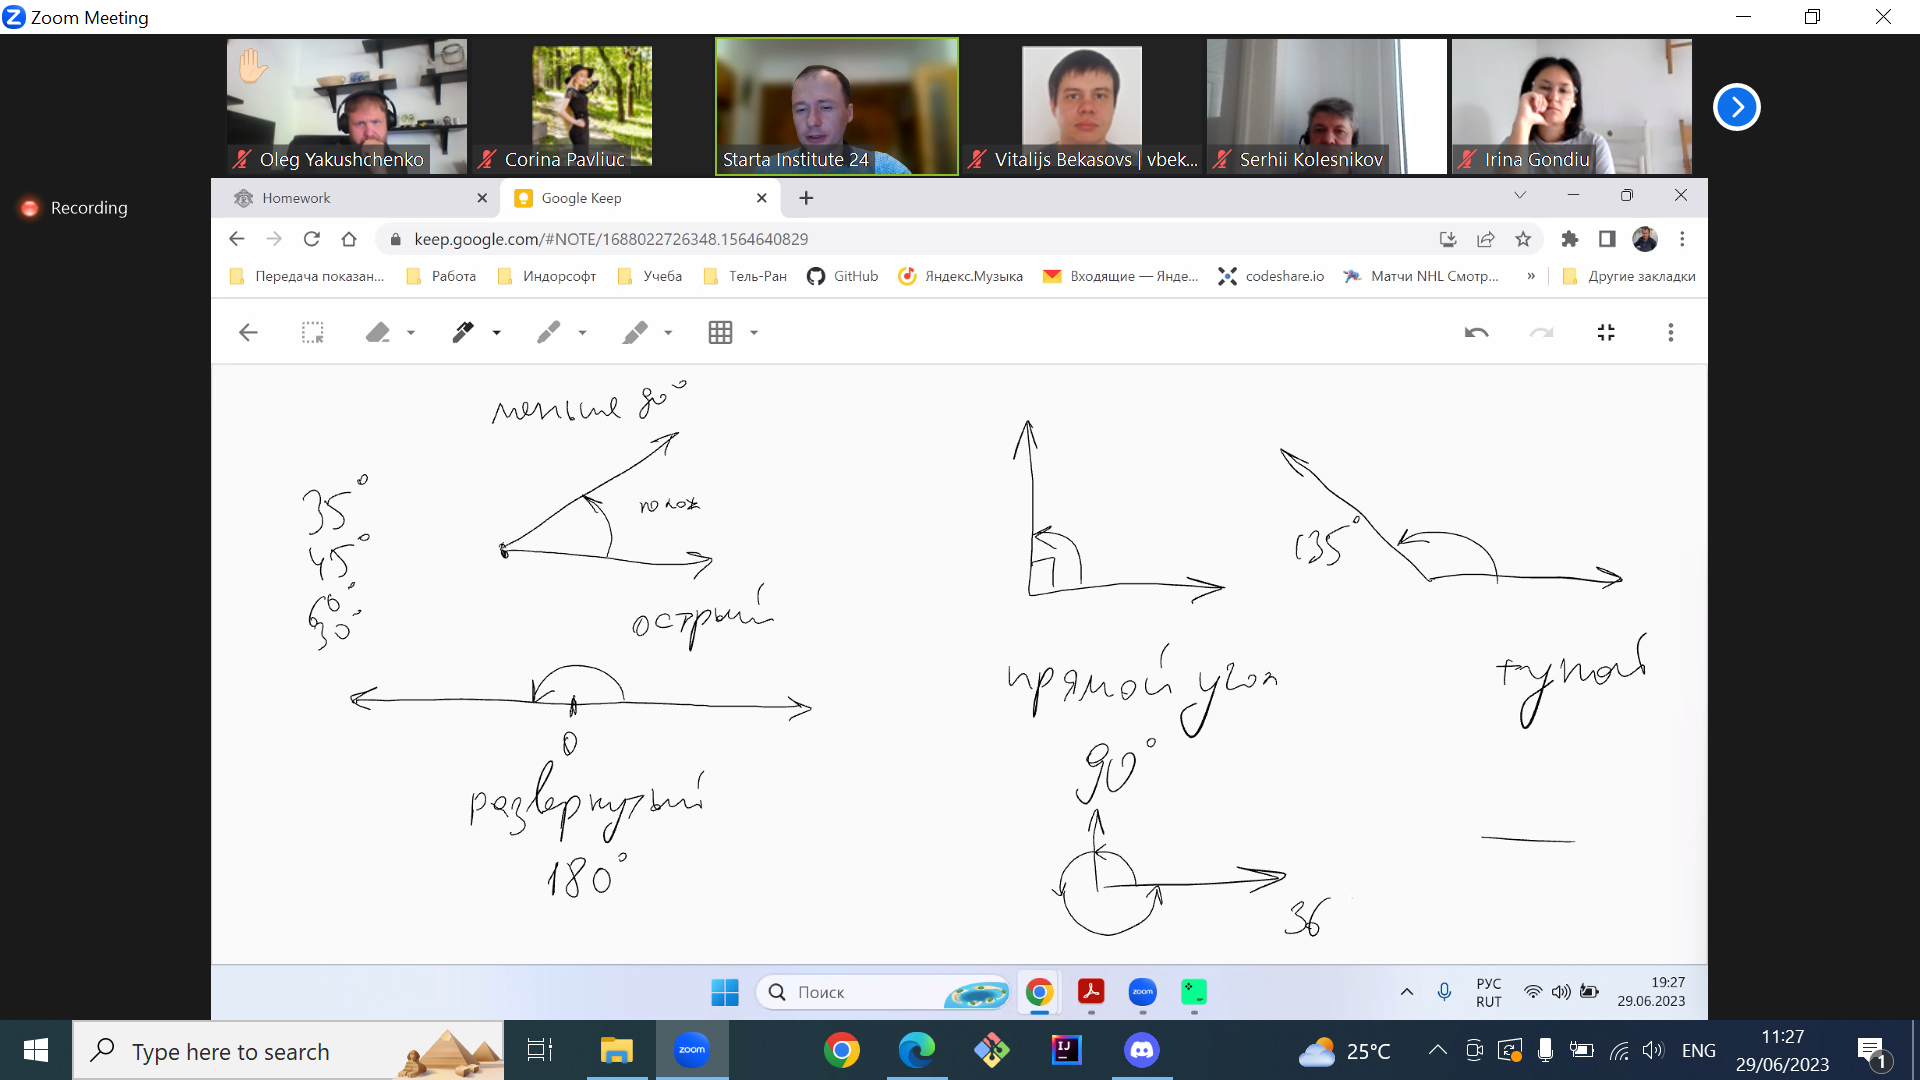 Zoom Meeting
Oleg Yakushchenko
Corina Pavliuc
Starta Institute 24
Vitalijs Bekasovs | vbek...
Serhii Kolesnikov
Irina Gondiu
Recording
Homework
Google Keep
keep.google.com/#NOTE/1688022726348.1564640829
Передача показан...
Работа
Индорсофт
Учеба
Тель-Ран
GitHub
Яндекс.Музыка
Входящие — Янде...
codeshare.io
Матчи NHL Смотр...
»
Другие закладки
меньше 90°
35°
45°
60°
30°
полож
острый
135°
прямой угол
90°
тупой
0
развернутый
180°
36
Поиск
zoom
РУС
RUT
19:27
29.06.2023
Type here to search
zoom
25°C
ENG
11:27
29/06/2023
1